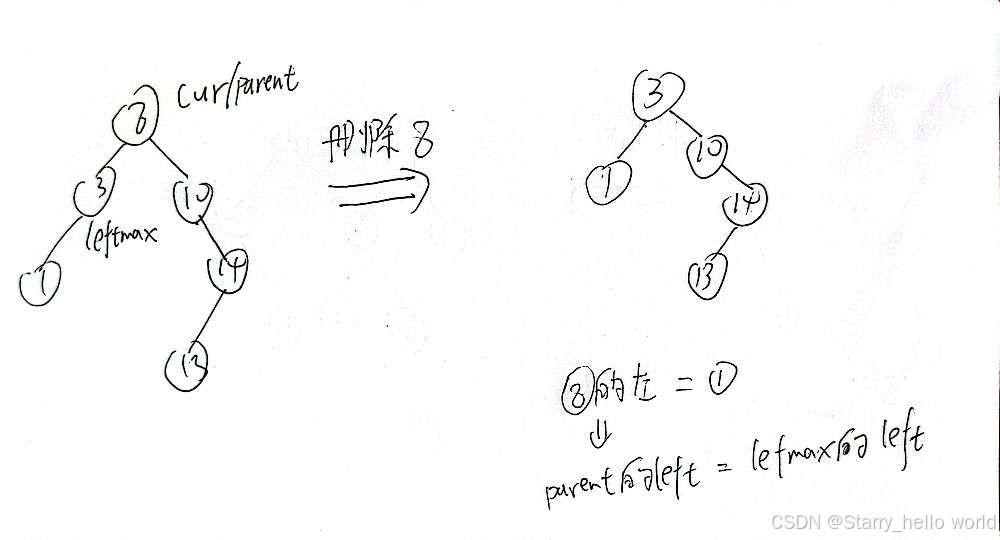 cur/parent
8
删除 8
3
10
leftmax
1
14
13
3
1
10
14
13
⑧的左 = ①
⇓
parent的left = lefmax的left
CSDN @Starry_hello world